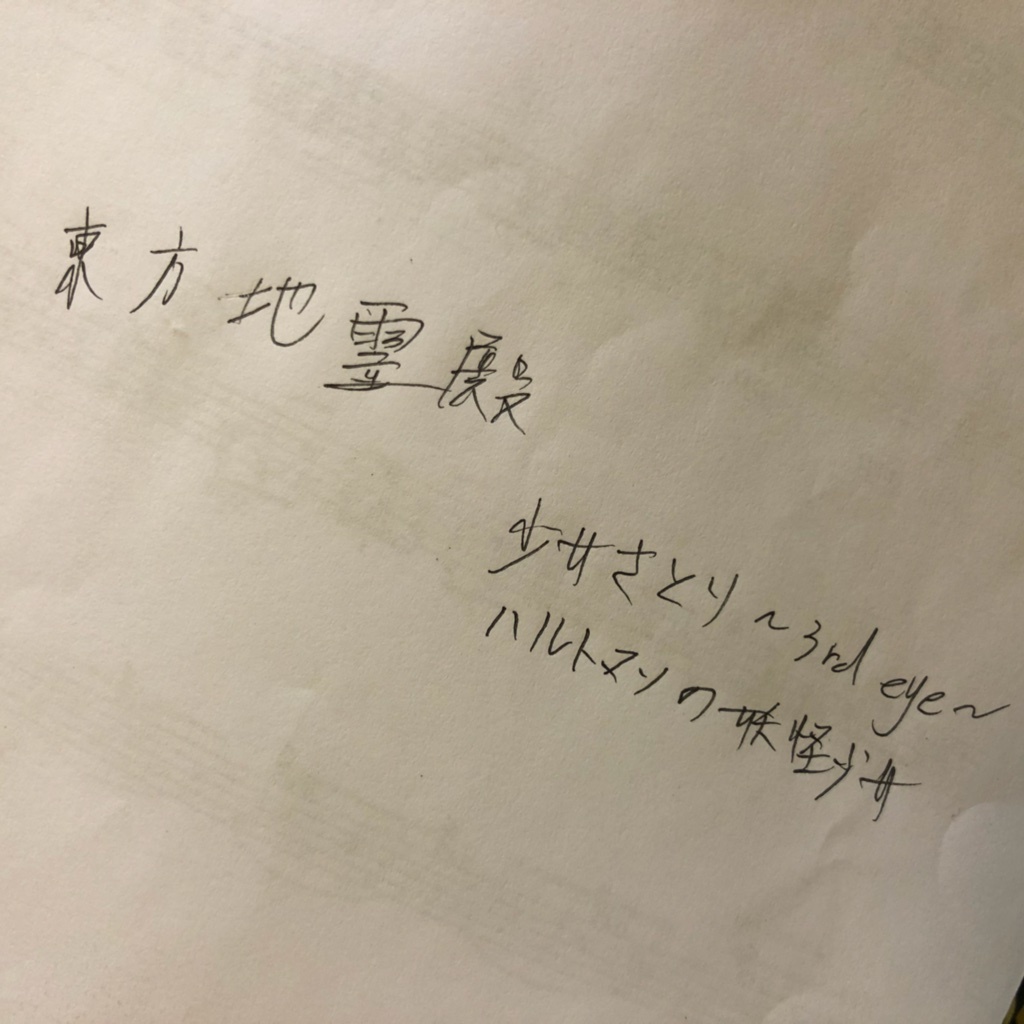 東方地霊殿
少女さとり ～3rd eye～
ハルトマンの妖怪少女